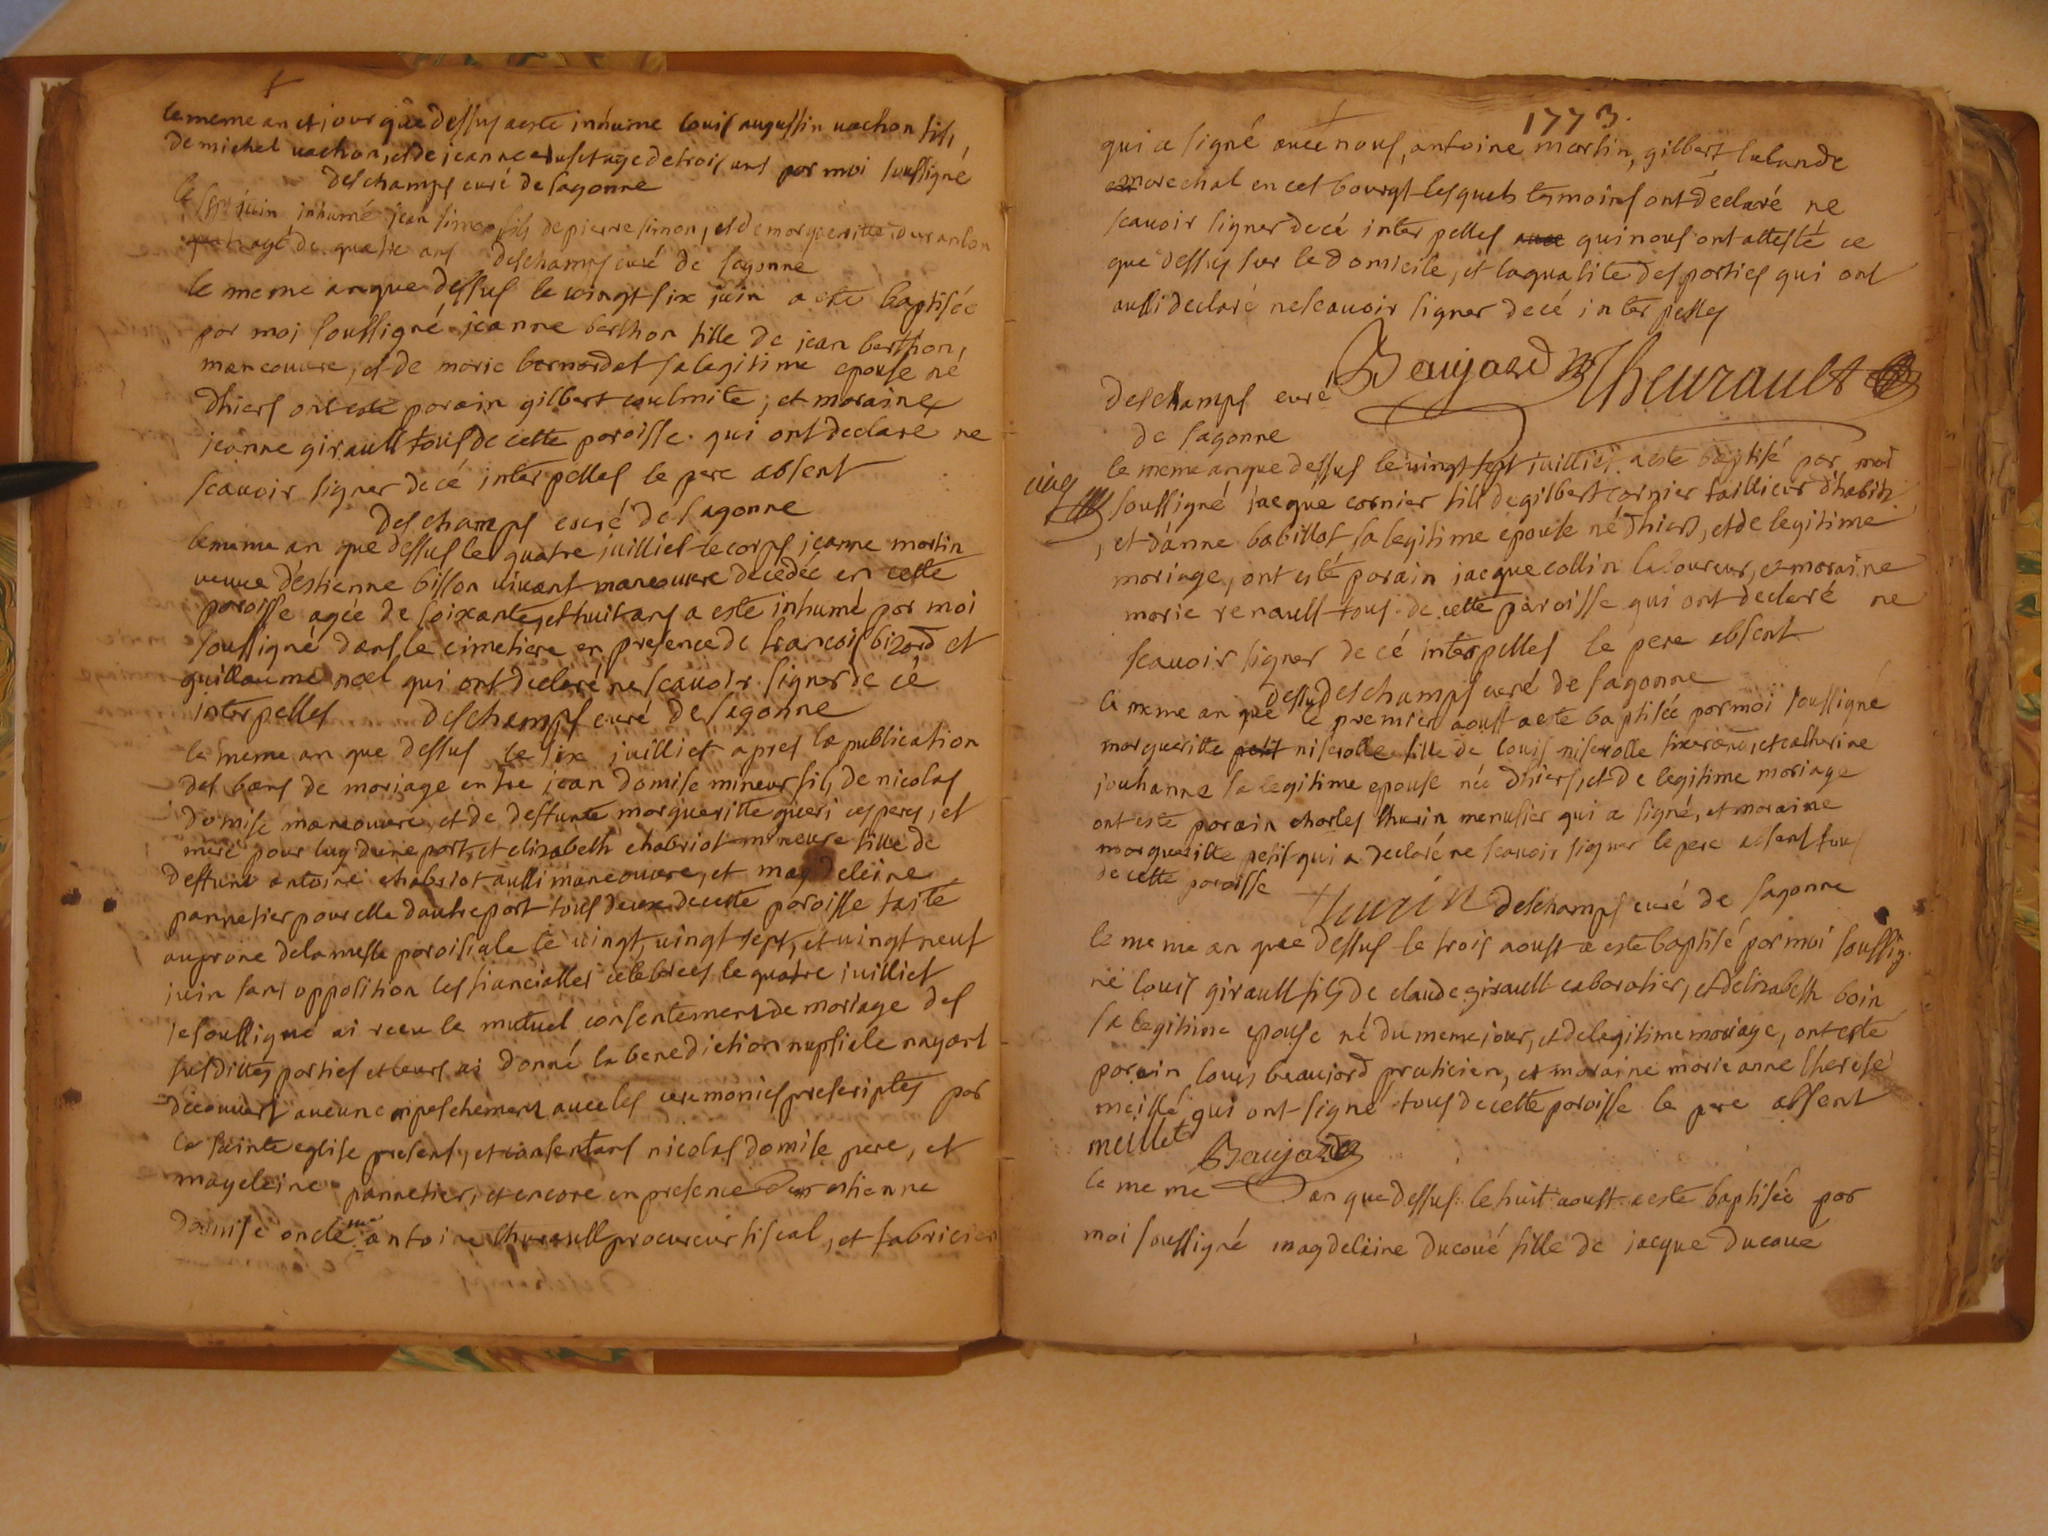 le meme an et jour que dessus a este inhume louis augustin vachon fils
de michel vachon, et de jeanne agé de trois ans par moi soussigné
deschamps curé de sagonne
juin inhumé jean simon fils de pierre simon, et de margueritte duranton
agé de quatre ans deschamps curé de sagonne
le meme an que dessus le vingt six juin a este baptisée
par moi soussigné jeanne berthon fille de jean berthon,
maneouvre, et de marie bernardat sa legitime epouse né
dhiers ont esté parain gilbert coulmite, et maraine
jeanne girault tous de cette paroisse qui ont declaré ne
scavoir signer de cé interpelles le pere absent
deschamps curé de sagonne
le meme an que dessus le quatre juilliet le corps jeanne martin
veuve d'estienne bisson vivant maneouvre decedée en cette
paroisse agée de soixante et huit ans a este inhumé par moi
soussigné dans le cimetiere en presence de francois bizord et
guillaume noel qui ont declaré ne scavoir signer de cé
interpelles deschamps curé de sagonne
le meme an que dessus le six juilliet apres la publication
des bans de mariage entre jean domise mineur fils de nicolas
domise maneouvre, et de deffunte margueritte gueri ces peres, et
mere pour luy dune part, et elizabeth chabriot mineure fille de
deffunt antoine chabriot aussi maneouvre, et magdeleine
pannetier pour elle dautre part tous deux de cette paroisse faite
au prone de la messe paroisiale le vingt, vingt sept, et vingt neuf
juin sans opposition les fiancialles celebrees le quatre juilliet
je soussigné ai receu le mutuel consentement de mariage des
susdittes parties et leurs ai donné la benediction nuptiale nayant
decouvert aucun enpeschement avec les ceremonies prescriptes par
la sainte eglise present, et consentans nicolas domise pere, et
magdeleine pannetier, et encore en presence estienne
domise oncle me antoine theurault procureur fiscal, et fabricien
1773.
qui a signé avec nous, antoine martin, gilbert lalande
marechal en cet bourgt lesquels temoins ont déclaré ne
scavoir signer de cé interpelles qui nous ont attesté ce
que dessus sur le domicile, et la qualité des parties qui ont
aussi declaré ne scavoir signer de cé interpelles
Baujard Theurault
deschamps curé
de sagonne
le meme an que dessus le vingt sept juilliet a este baptisé par moi
soussigné jacque cornier fils de gilbert cornier taillieur d'habits
, et d'anne babillot sa legitime epouse né dhiers, et de legitime
mariage, ont esté parain jacque collin laboureur, et maraine
marie renault tous de cette paroisse qui ont declaré ne
scavoir signer de cé interpelles le pere absent
deschamps curé de sagonne
le meme an que dessus le premier aoust a este baptisée par moi soussigné
margueritte petit niserolle fille de louis niserolle tixerand, et catherine
jouhanne sa legitime epouse née dhiers, et de legitime mariage
ont este parain charles thurin menusier qui a signé, et maraine
margueritte petit qui a declaré ne scavoir signer le pere absent tous
de cette paroisse thurin deschamps curé de sagonne
le meme an que dessus le trois aoust a este baptisé par moi soussig
né louis girault fils de claude girault cabaratier, et delizabeth boin
sa legitime epouse né du meme jour, et de legitime mariage, ont este
parain louis beaujard praticien, et maraine marie anne therese
meillé qui ont signé tous de cette paroisse le pere absent
meillet Baujard
le meme an que dessus le huit aoust a este baptisée par
moi soussigné magdeleine ducoué fille de jacque ducoué